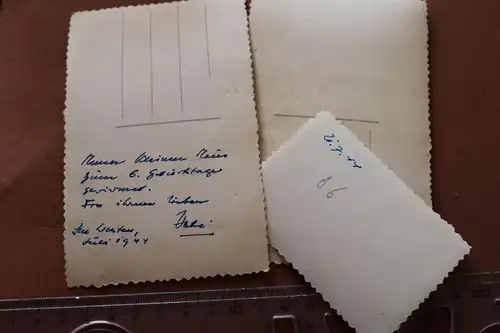 Meiner kleinen Maus
zum 6. Geburtstage
gewidmet.
Von ihrem lieben
Vati
Im Westen,
Juli 1944
86